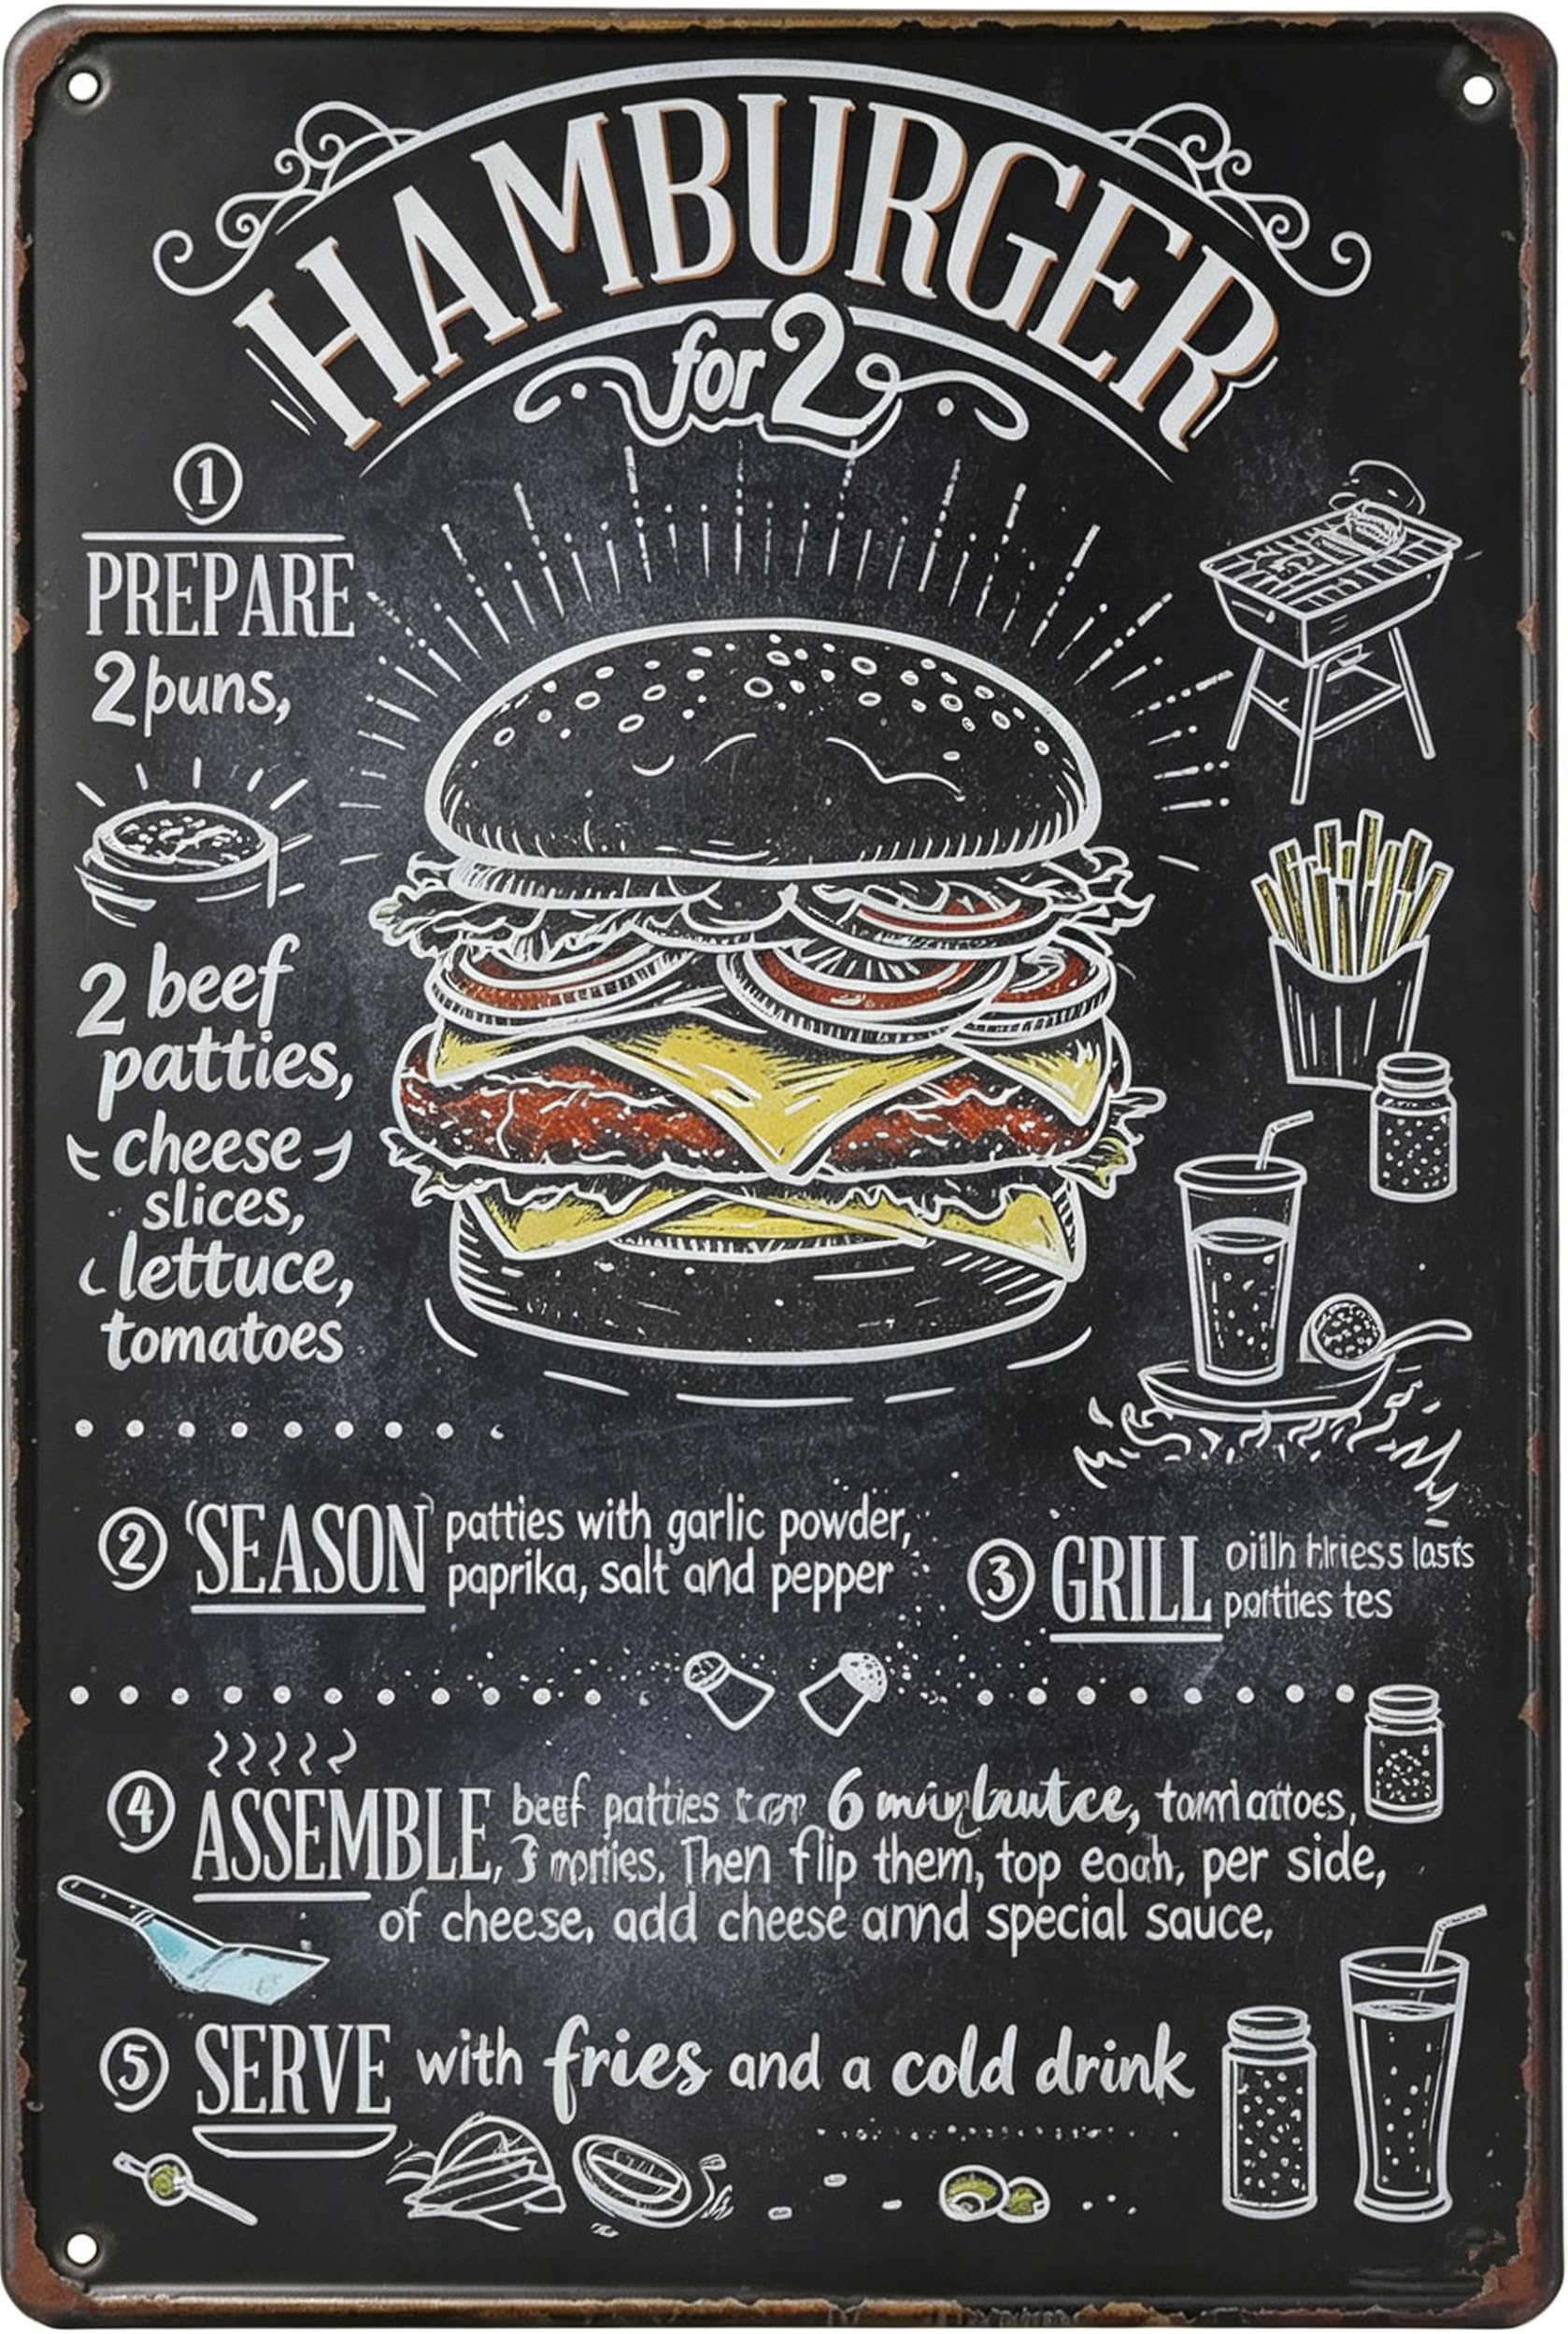 HAMBURGER
for 2
1
PREPARE
2 buns,
2 beef
patties,
cheese
slices,
lettuce,
tomatoes
2 SEASON patties with garlic powder,
paprika, salt and pepper
3 GRILL
4 ASSEMBLE, beef patties 6
3 Then flip them, top per side,
of cheese, add cheese annd special sauce,
5 SERVE with fries and a cold drink